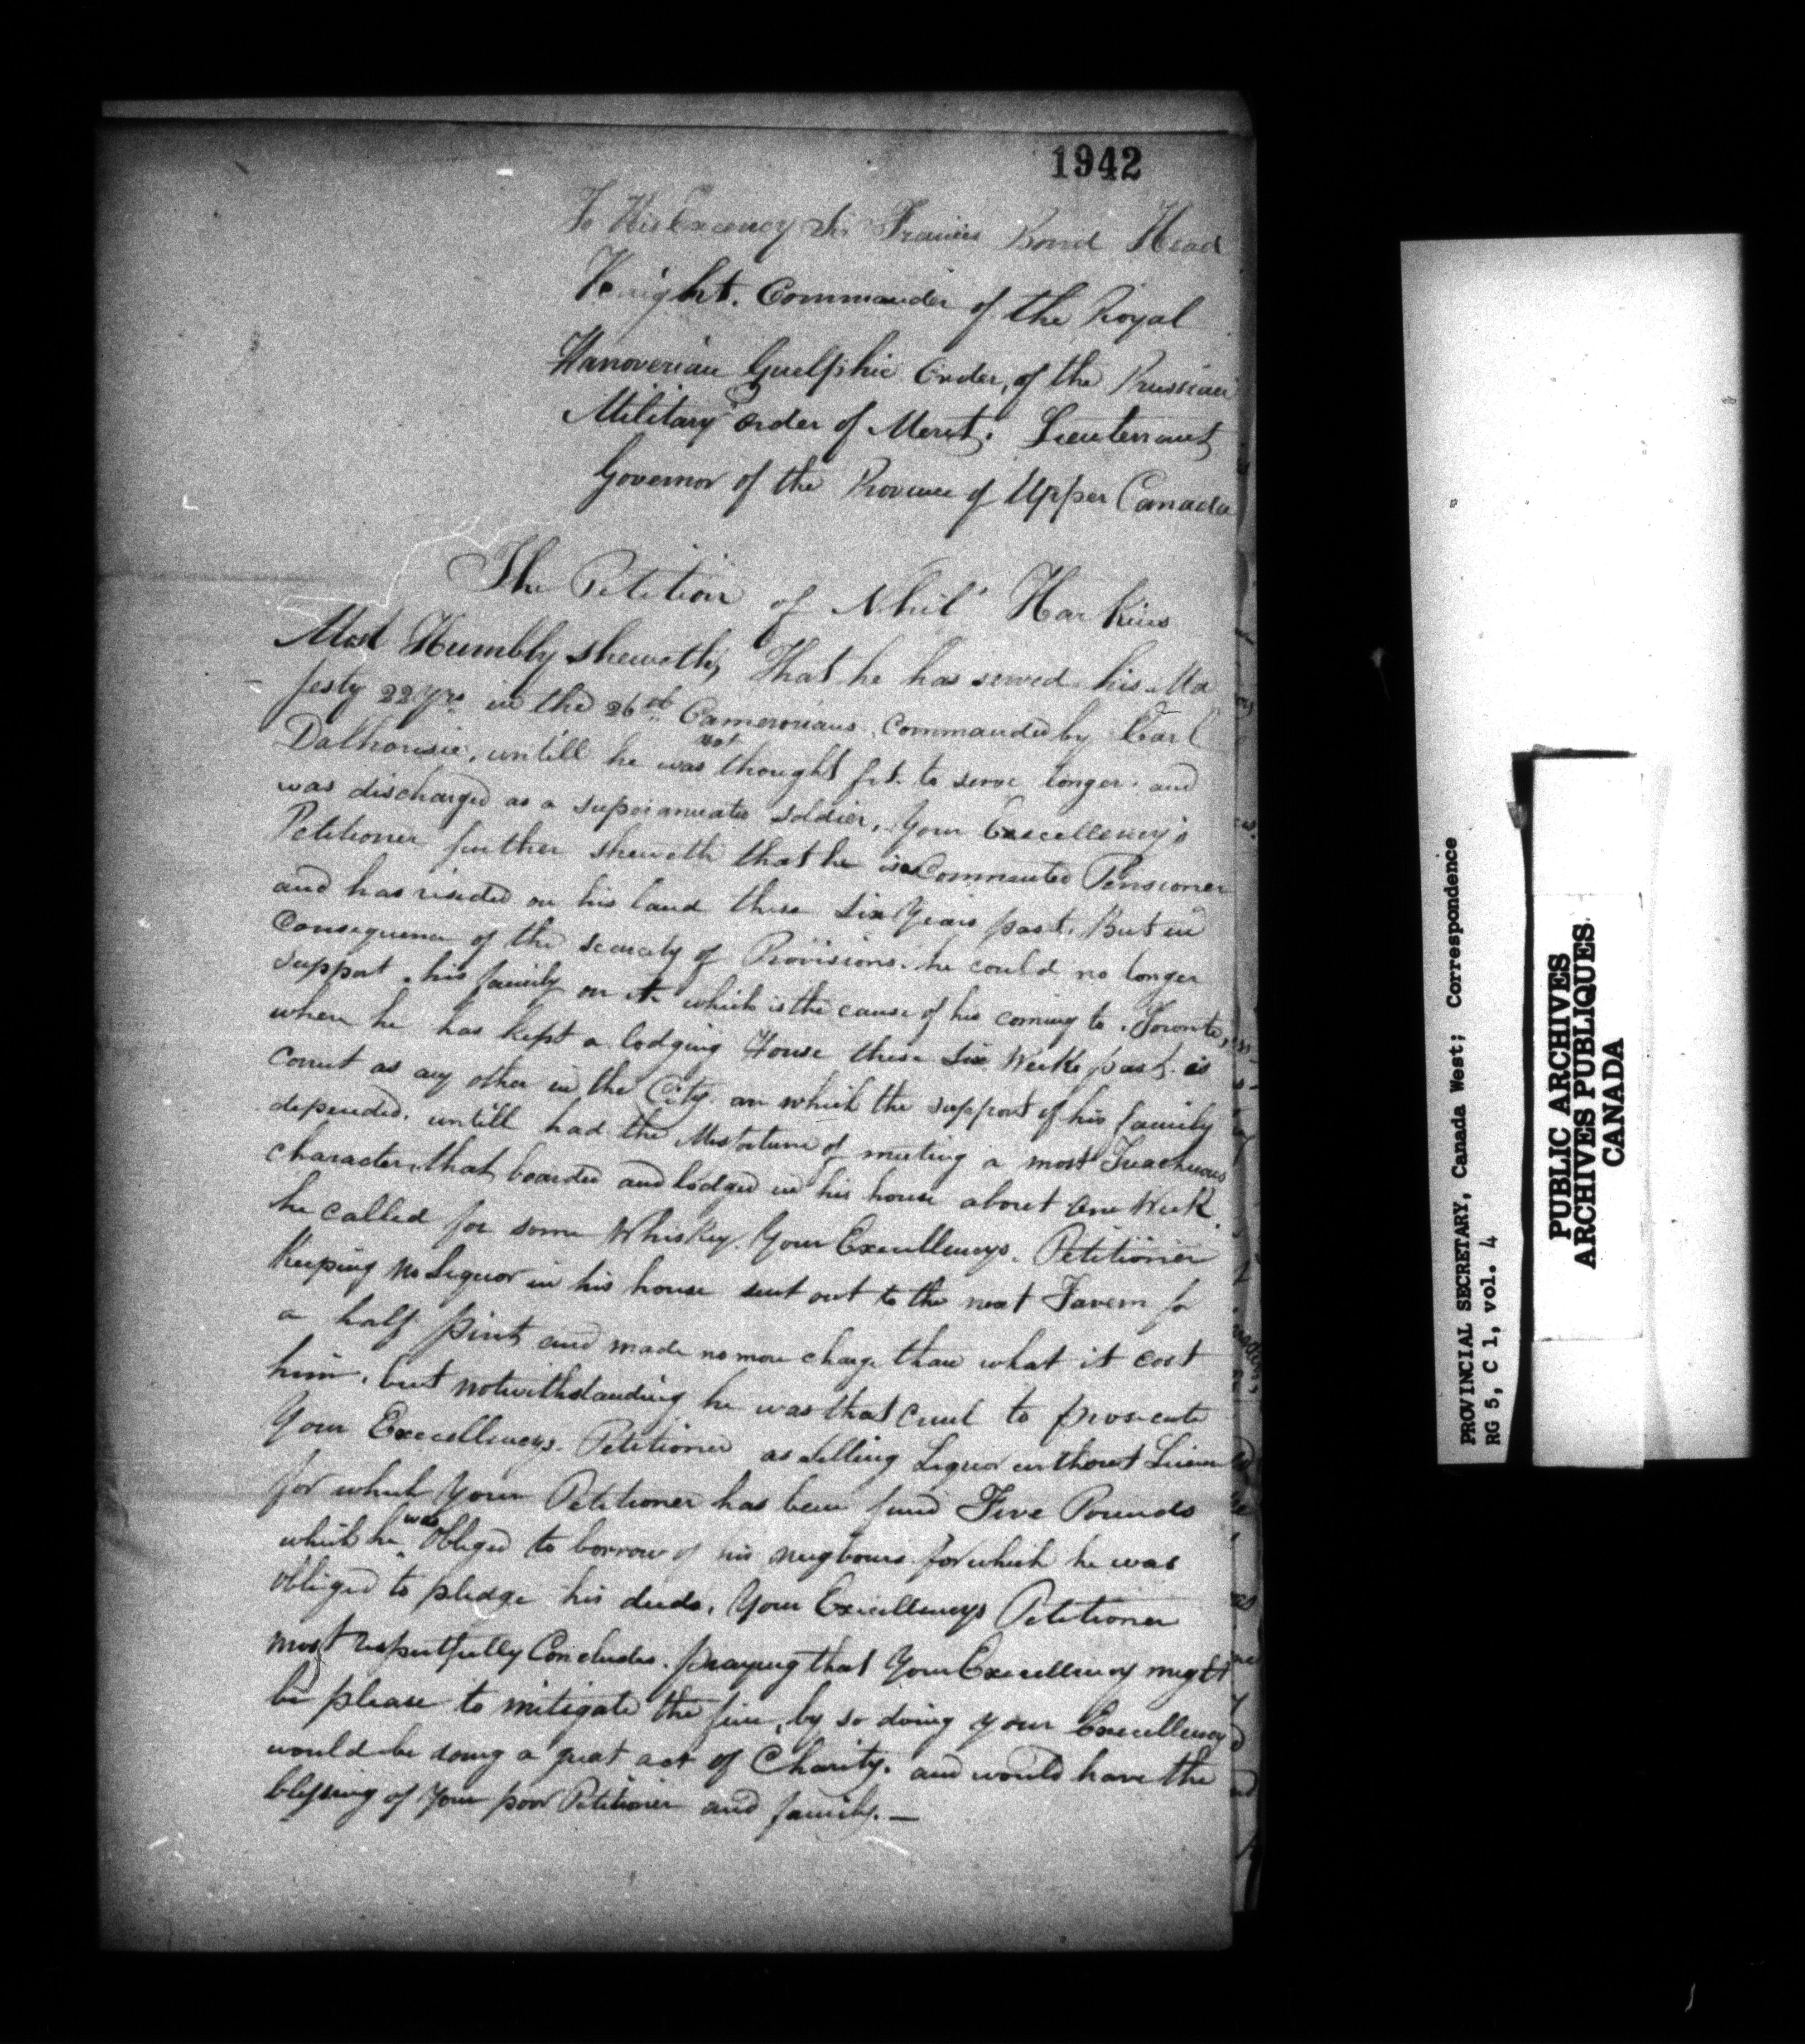 1942
To His Excency Sir Francis Bond Head
Knight. Commander of the Royal
Hanoverian Guelphic Order, of the Prussian
Military Order of Merit. Lieutenant
Governor of the Province of Upper Canada
The Petition of Nhil Harkins
Most Humbly sheweth, That he has served his Ma
jesty 22 yrs in the 26th Cameronians, Commanded by Earl
Dalhousie, untill he was not thought fit to serve longer. and
was discharged as a superanuated soldier, Your Excellency's
Petitioner further sheweth that he is a Commuted Pensioner
and has resided on his land these Six Years past. But in
Consequence of the scarcity of Provisions. he could no longer
support his family on it which is the cause of his coming to Toronto,
where he has kept a lodging House these Six Weeks past as
corect as any other in the City. on which the support of his family
depended. untill had the Misfortune of meeting a most Treacherous
character, that boarded and lodged in his house about One Week.
he called for some Whiskey. Your Excellencys. Petitioner
Keeping no Liquor in his house sent out to the next Tavern for
a half pint, and made no more charge than what it cost
him. but notwithstanding he was that cruel to prosecute
Your Excellencys. Petitioner as selling Liquor without
for which Your Petitioner has been fined Five Pounds
which he was Obliged to borrow of his neigbours for which he was
obliged to pledge his deeds, Your Excellencys Petitioner
most respectfully Concludes. praying that Your Excellency might
be please to mitigate the fine, by so doing your Excellency
would be doing a great act of Charity. and would have the
blessing of Your poor Petitioner and family. —
PROVINCIAL SECRETARY, Canada West; Correspondence
RG 5, C 1, vol. 4
PUBLIC ARCHIVES
ARCHIVES PUBLIQUES
CANADA